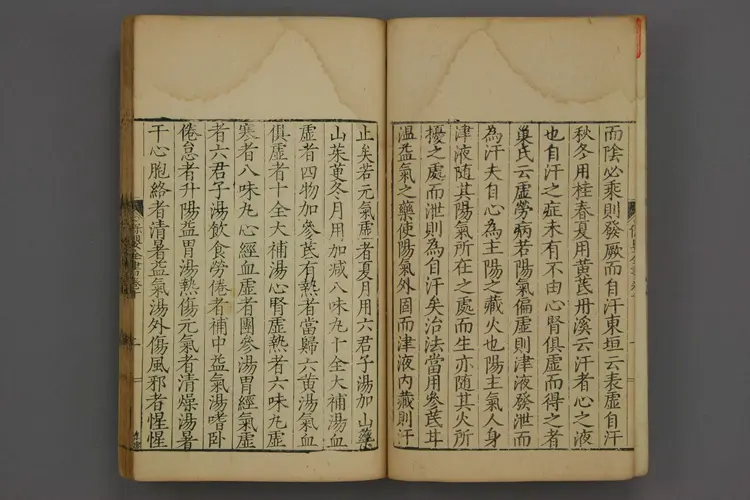 而陰必乘則發厥而自汗東垣云表虛自汗
秋冬用桂春夏用黄芪丹溪云汗者心之液
也自汗之症未有不由心腎俱虛而得之者
巢氏云虛勞病若陽氣偏虛則津液發泄而
為汗夫自心為主陽之藏火也陽主氣人身
津液随其陽氣所在之處而生亦随其火所
擾之處而泄則為自汗矣治法當用參芪甘
溫益氣之藥使陽氣外固而津液内藏則汗
止矣若元氣虛者夏月用六君子湯加山藥
山茱萸冬月用加减八味丸十全大補湯血
虛者四物加參芪有熱者當歸六黄湯氣血
俱虛者十全大補湯心腎虛熱者六味丸虛
寒者八味丸心經血虛者團參湯胃經氣虛
者六君子湯飲食勞倦者補中益氣湯嗜卧
倦怠者升陽益胃湯熱傷元氣者清燥湯暑
干心胞絡者清暑益氣湯外傷風邪者惺惺